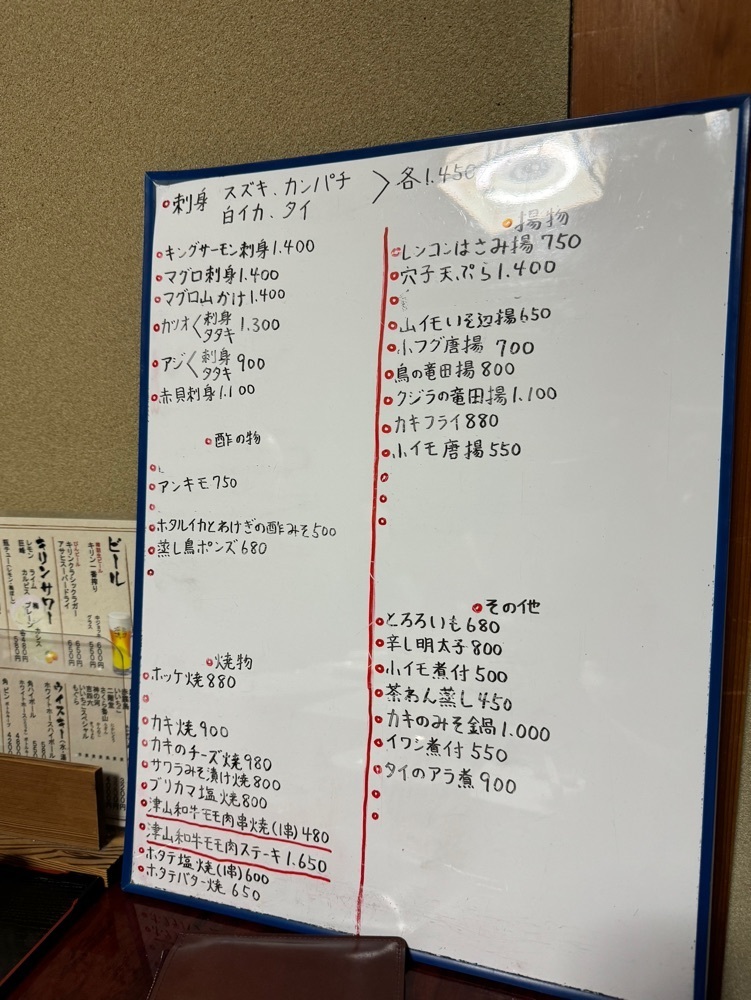 刺身 スズキ、カンパチ
白イカ、タイ
各1.450
キングサーモン刺身1.400
マグロ刺身1.400
マグロ山かけ1.400
カツオ 刺身
タタキ 1.300
アジ 刺身
タタキ 900
赤貝刺身1.100
酢の物
アンキモ750
ホタルイカとわけぎの酢みそ500
蒸し鳥ポンズ680
焼物
ホッケ焼880
カキ焼900
カキのチーズ焼980
サワラみそ漬け焼800
ブリカマ塩焼800
津山和牛モモ肉串焼(1串)480
津山和牛モモ肉ステーキ1.650
ホタテ塩焼(1串)600
ホタテバター焼 650
揚物
レンコンはさみ揚750
穴子天ぷら1.400
山イモいそ辺揚650
小フグ唐揚 700
鳥の竜田揚800
クジラの竜田揚1.100
カキフライ880
小イモ唐揚550
その他
とろろいも680
辛し明太子800
小イモ煮付500
茶わん蒸し450
カキのみそ鍋1.000
イワシ煮付550
タイのアラ煮900
ビール
キリン一番搾り
キリンクラシックラガー
アサヒスーパードライ
キリンサワー
レモン
ライム
カルピス
プレーン
ウイスキー
角ハイボール
ホワイトホースハイボール